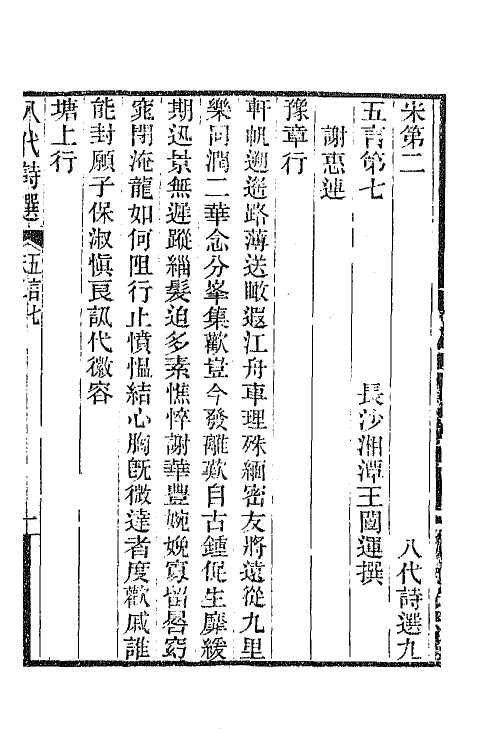 宋第二　八代詩選九
五言第七　長沙湘潭王闓運撰
謝惠連
豫章行
軒帆遡遥路薄送瞰遐江舟車理殊緬密友將遠從九里
樂同潤二華念分峯集歡豈今發離歎自古鍾促生靡緩
期迅景無遲蹤緇髮迫多素憔悴謝華豐婉娩寡留晷窈
窕閉淹龍如何阻行止憤慍結心胸旣微達者度歡戚誰
能封願子保淑愼良訊代徽容
塘上行
八代詩選　五言七　一